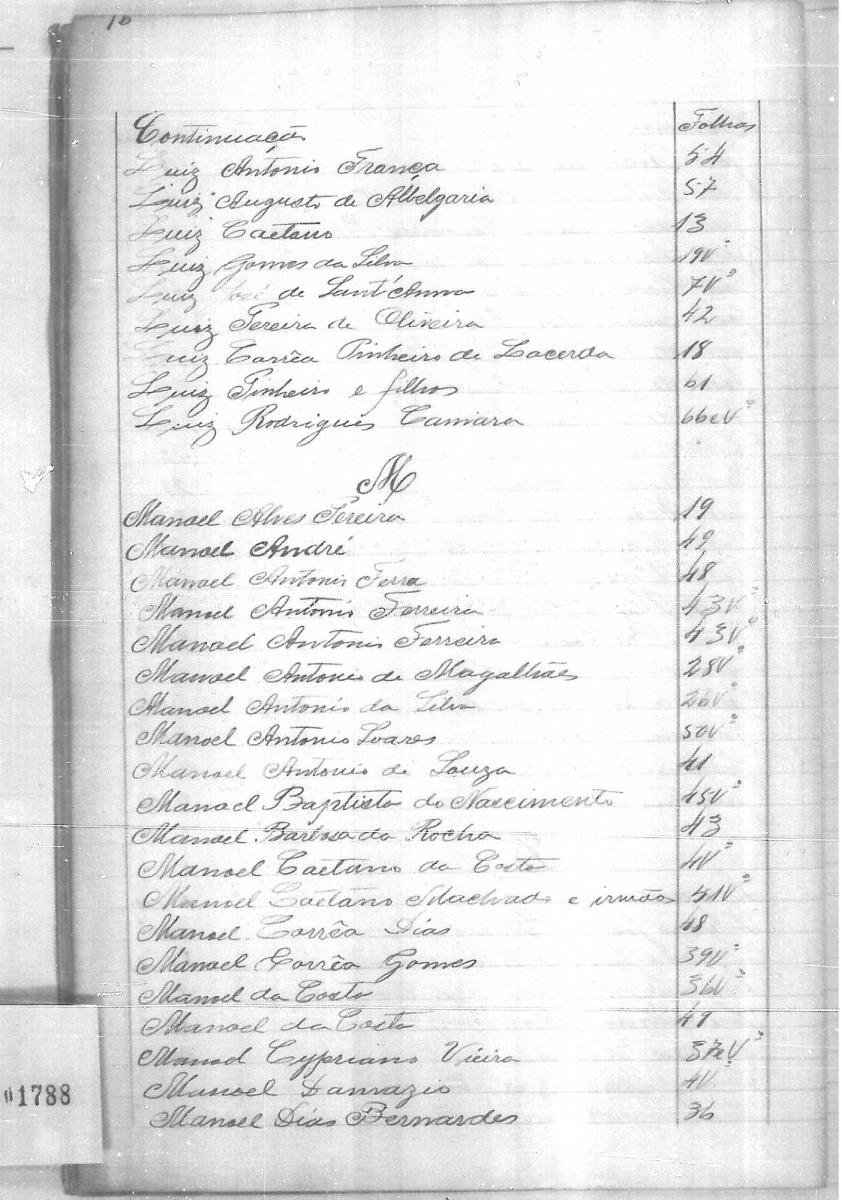 16
Continuação Folhas
Luiz Antonio França 54
Luiz Augusto de Albelgaria 57
Luiz Caetano 13
Luiz Gomes da Silva 19Vº
Luiz José de Sant'Anna 7Vº
Luiz Pereira de Oliveira 42
Luiz Corrêa Pinheiro de Lacerda 18
Luiz Pinheiro e filhos 61
Luiz Rodrigues Camara 66eVº
M
Manoel Alves Pereira 19
Manoel André 49
Manoel Antonio Ferra 48
Manoel Antonio Ferreira 43Vº
Manoel Antonio Ferreira 43Vº
Manoel Antonio de Magalhães 28Vº
Manoel Antonio da Silva 26Vº
Manoel Antonio Soares 50Vº
Manoel Antonio de Souza 41
Manoel Baptista do Nascimento 45Vº
Manoel Barbosa da Rocha 43
Manoel Caetano da Costa 4Vº
Manoel Caetano Machado e irmãos 51Vº
Manoel Corrêa Dias 48
Manoel Corrêa Gomes 39Vº
Manoel da Costa 36Vº
Manoel da Costa 49
Manoel Cypriano Vieira 37eVº
Manoel Damazio 4Vº
Manoel Dias Bernardes 36
01788